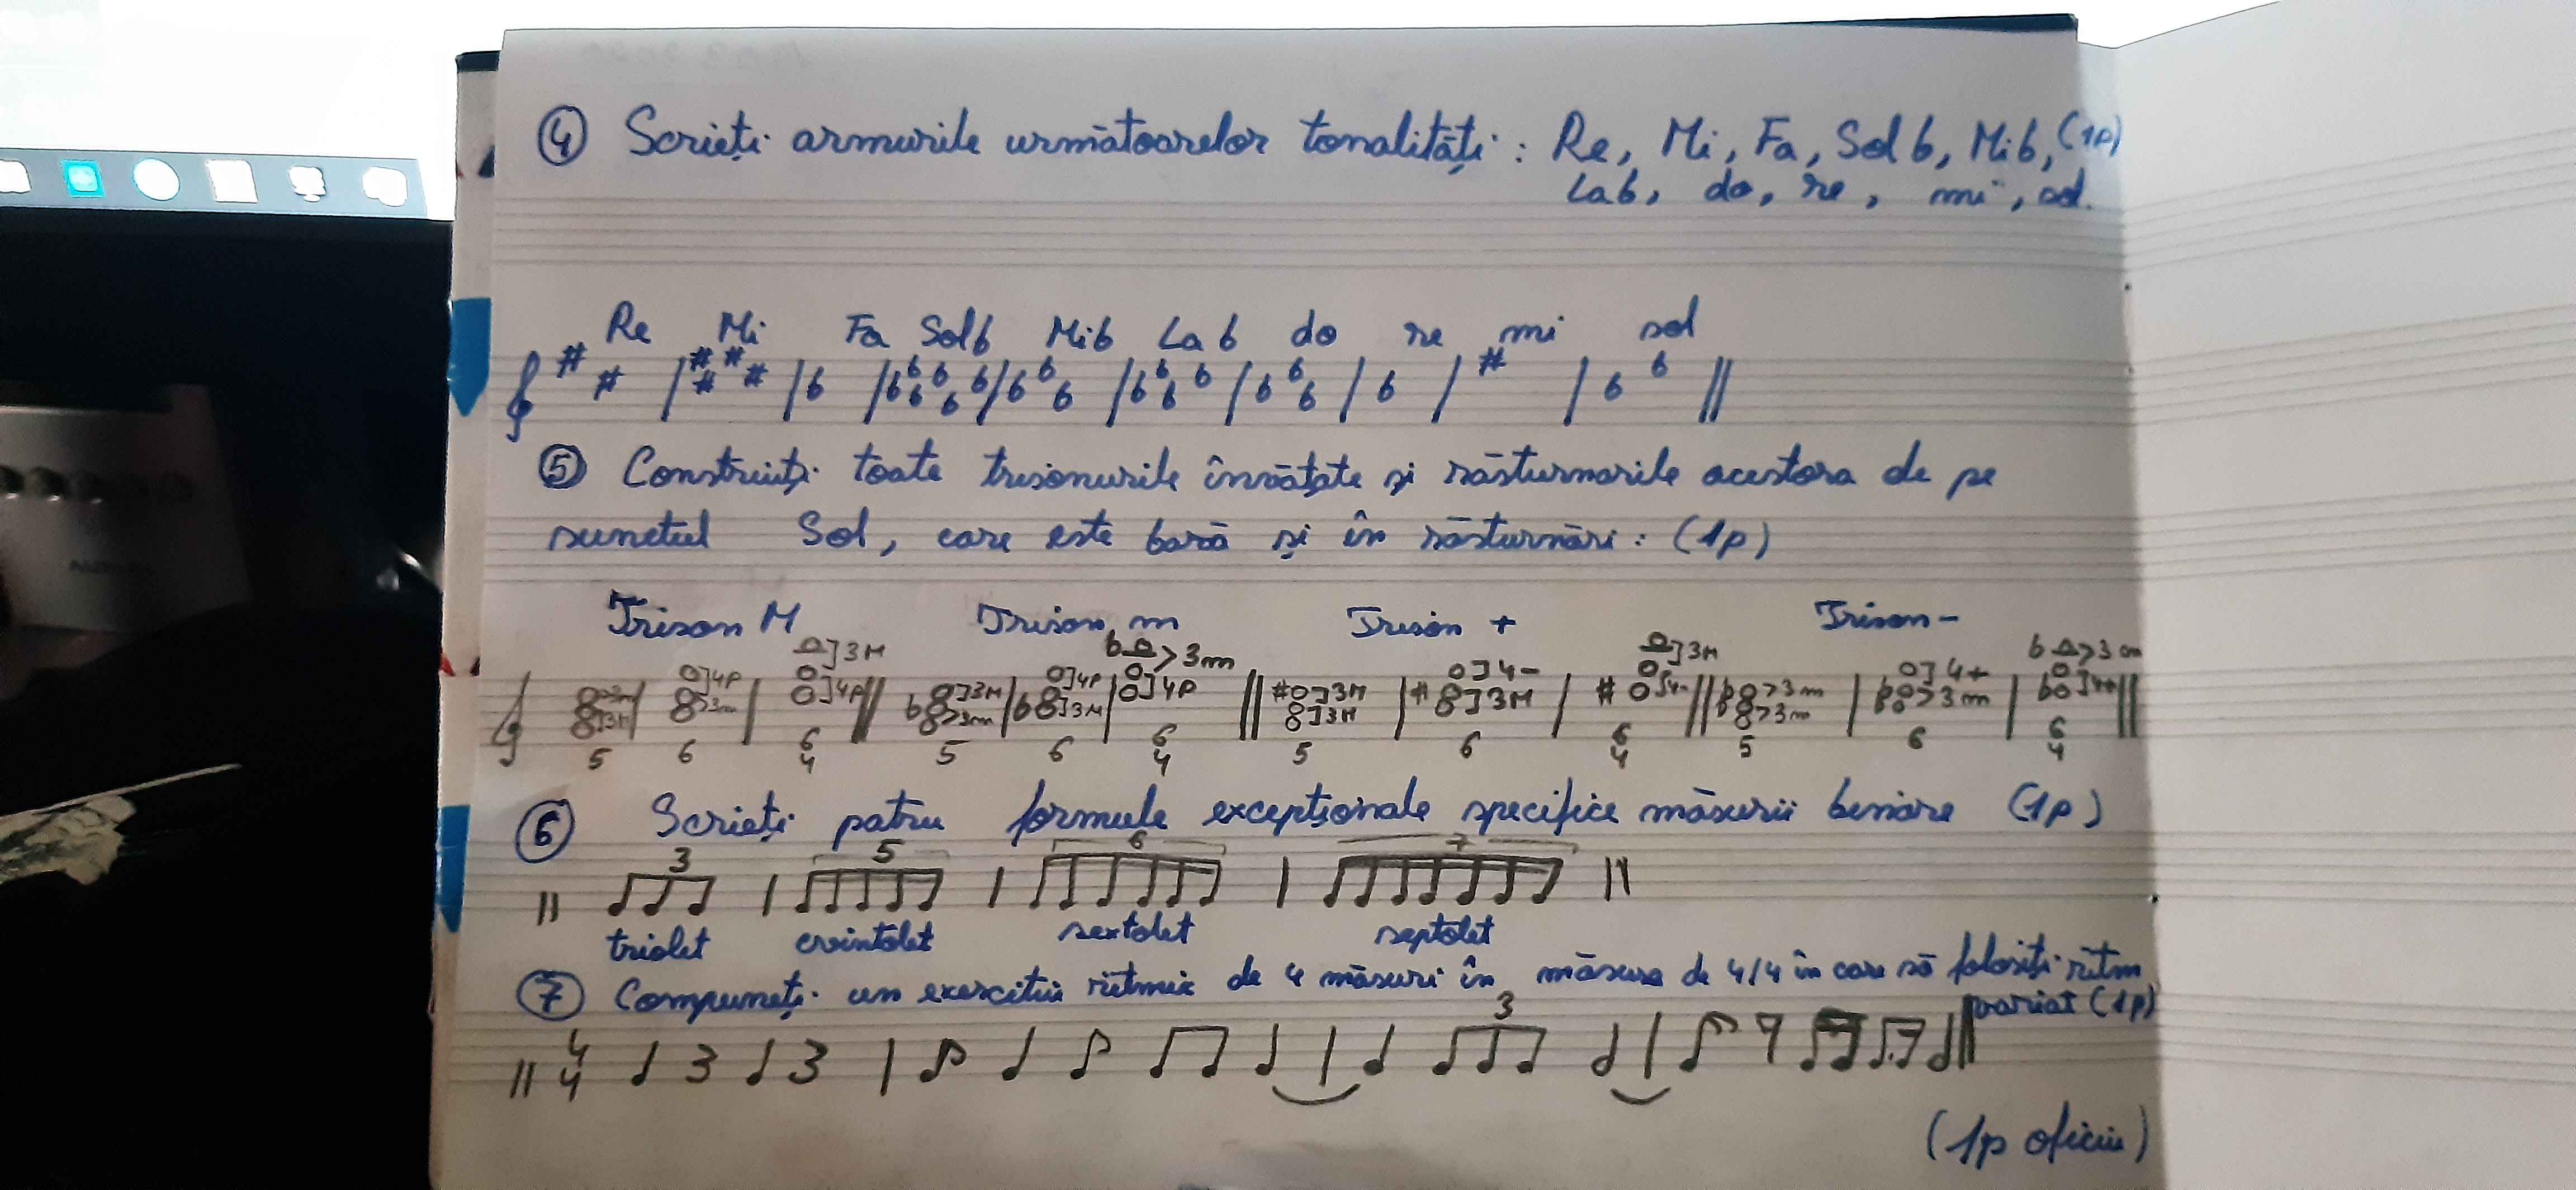 ④ Scrieți armurile următoarelor tonalități: Re, Mi, Fa, Sol b, Mib, (1p)
Lab, do, re, mi, sol.
Re Mi Fa Solb Mib La b do re mi sol
⑤ Construiți toate trisonurile învățate și răsturnările acestora de pe
sunetul Sol, care este bază și în răsturnări: (1p)
Trison M Trison m Trison + Trison -
]3M b >3m ]3M b >3m
>3m ]4P ]4P ]3M ]4P ]4P #]3M ]4- ]4- >3m ]4+ ]4+
]3M >3m b >3m b ]3M ]3M # ]3M # b >3m b >3m b
5 6 6 5 6 6 5 6 6 5 6 6
4 4 4 4
⑥ Scrieți patru formule excepționale specifice măsurii binare (1p)
3 5 6 7
triolet cvintolet sextolet septolet
⑦ Compuneți un exercițiu ritmic de 4 măsuri în măsura de 4/4 în care să folosiți ritm
variat (1p)
4 3
4
(1p oficiu)